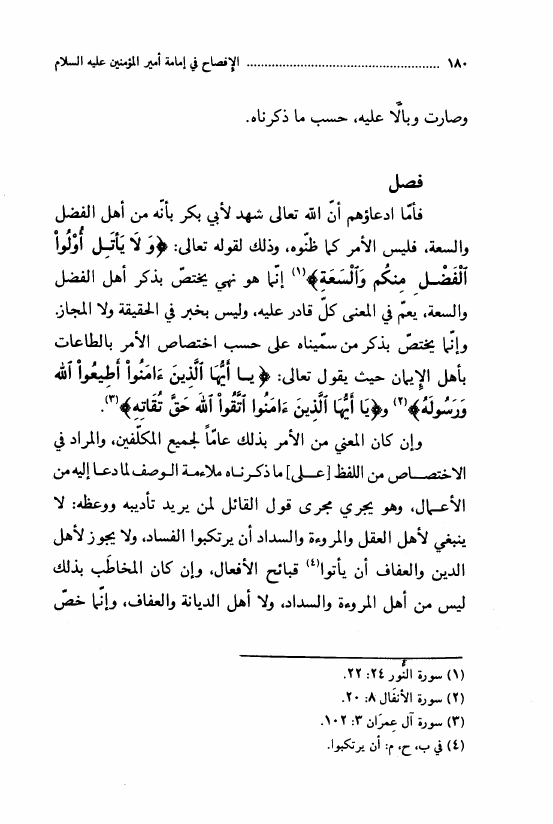 ١٨٠ ........................................................ الإفصاح في إمامة أمير المؤمنين عليه السلام
وصارت وبالًا عليه، حسب ما ذكرناه.
فصل
فأمّا ادعاؤهم أنّ الله تعالى شهد لأبي بكر بأنّه من أهل الفضل
والسعة، فليس الأمر كما ظنّوه، وذلك لقوله تعالى: ﴿وَلَا يَأْتَلِ أُوْلُواْ
ٱلْفَضْلِ مِنكُمْ وَٱلسَّعَةِ﴾(١) إنّما هو نهي يختصّ بذكر أهل الفضل
والسعة، يعمّ في المعنى كلّ قادر عليه، وليس بخبر في الحقيقة ولا المجاز.
وإنّما يختصّ بذكر من سمّيناه على حسب اختصاص الأمر بالطاعات
بأهل الإيمان حيث يقول تعالى: ﴿يَا أَيُّهَا ٱلَّذِينَ ءَامَنُواْ أَطِيعُواْ ٱلله
وَرَسُولَهُ﴾(٢) و﴿يَا أَيُّهَا ٱلَّذِينَ ءَامَنُوا ٱتَّقُواْ ٱلله حَقَّ تُقَاتِهِ﴾(٣).
وإن كان المعني من الأمر بذلك عامّاً لجميع المكلّفين، والمراد في
الاختصاص من اللفظ [على] ما ذكرناه ملاءمة الوصف لما دعا إليه من
الأعمال، وهو يجري مجرى قول القائل لمن يريد تأديبه ووعظه: لا
ينبغي لأهل العقل والمروءة والسداد أن يرتكبوا الفساد، ولا يجوز لأهل
الدين والعفاف أن يأتوا(٤) قبائح الأفعال، وإن كان المخاطَب بذلك
ليس من أهل المروءة والسداد، ولا أهل الديانة والعفاف، وإنّما خصّ
(١) سورة النُّور ٢٤: ٢٢.
(٢) سورة الأنفَال ٨: ٢٠.
(٣) سورة آل عِمرَان ٣: ١٠٢.
(٤) في ب، ح، م: أن يرتكبوا.